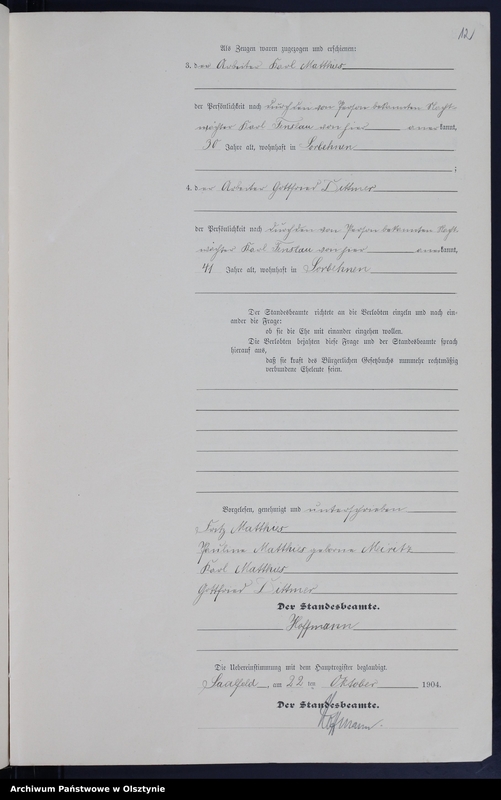 121
Als Zeugen waren zugezogen und erschienen:
3. der Arbeiter Karl Matthes
der Persönlichkeit nach durch den von Person bekannten Nacht-
wächter Karl Finslau von hier anerkannt,
30 Jahre alt, wohnhaft in Sorbehnen
;
4. der Arbeiter Gottfried Dittmer
der Persönlichkeit nach durch den von Person bekannten Nacht-
wächter Karl Finslau von hier anerkannt,
41 Jahre alt, wohnhaft in Sorbehnen
Der Standesbeamte richtete an die Verlobten einzeln und nach ein-
ander die Frage:
ob sie die Ehe mit einander eingehen wollen.
Die Verlobten bejahten diese Frage und der Standesbeamte sprach
hierauf aus,
daß sie kraft des Bürgerlichen Gesetzbuchs nunmehr rechtmäßig
verbundene Eheleute seien.
Vorgelesen, genehmigt und unterschrieben
Fritz Matthes
Pauline Matthes geborne Miretz
Karl Matthes
Gottfried Dittmer
Der Standesbeamte.
Hoffmann
Die Uebereinstimmung mit dem Hauptregister beglaubigt.
Saalfeld, am 22 ten Oktober 1904.
Der Standesbeamte.
Hoffmann.
Archiwum Państwowe w Olsztynie